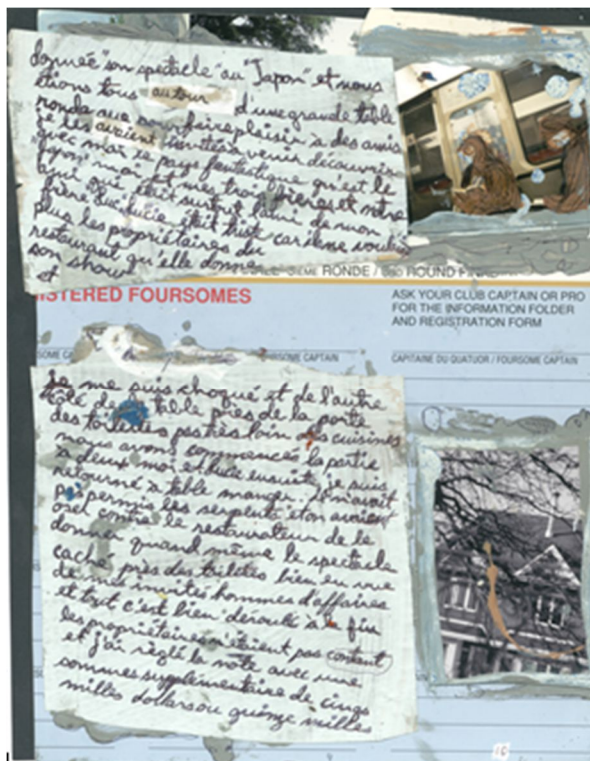 donnée "son spectacle" au "Japon" et nous
étions tous autour d'une grande table
ronde que pour faire plaisir à des amis
je les avaient invités à venir découvrir
avec moi le pays fantastique qu'est le
Japon, moi et mes trois et notre
ami qui était surtout l'ami de mon
frère Luc. Lucie était triste car je ne voulais
plus les propriétaires du
restaurant qu'elle donne
son show
et
RONDE / ROUND
ISTERED FOURSOMES
ASK YOUR CLUB CAPTAIN OR PRO
FOR THE INFORMATION FOLDER
AND REGISTRATION FORM
FOURSOME CAPTAIN
CAPITAINE DU QUATUOR / FOURSOME CAPTAIN
Je me suis choqué et de l'autre
côté de la table près de la porte
des toilettes pas très loin des cuisines
nous avons commencés la partie
à deux moi et Lucie ensuite je suis
retourné à table manger. Il m'avait
pas permis les serpents et on avaient
osel contre le restaurateur de le
donner quand même le spectacle
caché près des toilètes bien en vue
de mes invités hommes d'affaires
et tout c'est bien déroulé à la fin
les propriétaires n'étaient pas content
et j'ai règlé la note avec une
sommes supplémentaire de cinqs
milles dollars ou quinze milles
16